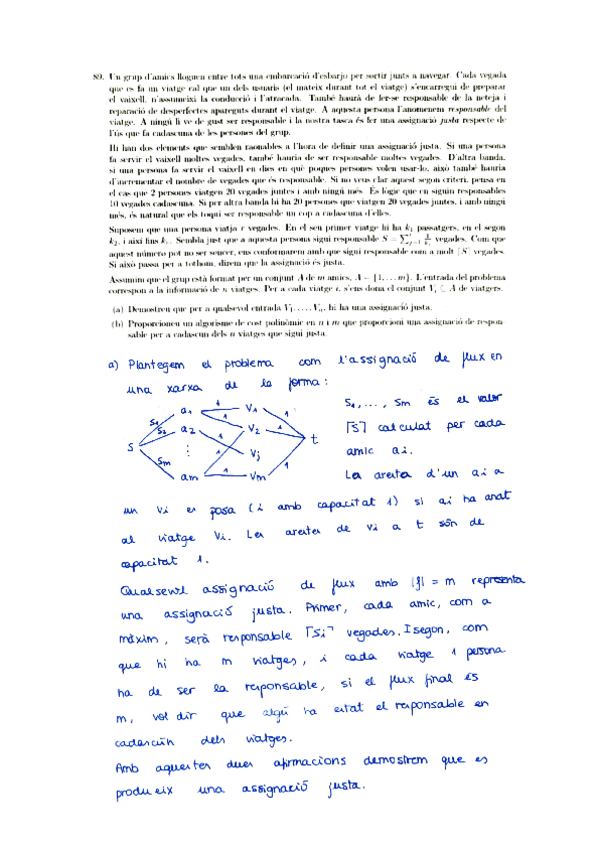 89. Un grup d'amics lloguen entre tots una embarcació d'esbarjo per sortir junts a navegar. Cada vegada
que es fa un viatge cal que un dels usuaris (el mateix durant tot el viatge) s'encarregui de preparar
el vaixell, n'assumeixi la conducció i l'atracada. També haurà de fer-se responsable de la neteja i
reparació de desperfectes apareguts durant el viatge. A aquesta persona l'anomenem responsable del
viatge. A ningú li ve de gust ser responsable i la nostra tasca és fer una assignació justa respecte de
l'ús que fa cadascuna de les persones del grup.
Hi han dos elements que semblen raonables a l'hora de definir una assignació justa. Si una persona
fa servir el vaixell moltes vegades, també hauria de ser responsable moltes vegades. D'altra banda,
si una persona fa servir el vaixell en dies en què poques persones volen usar-lo, això també hauria
d'incrementar el nombre de vegades que és responsable. Si no veus clar aquest segon criteri, pensa en
el cas que 2 persones viatgen 20 vegades juntes i amb ningú més. És lògic que en siguin responsables
10 vegades cadascuna. Si per altra banda hi ha 20 persones que viatgen 20 vegades juntes, i amb ningú
més, és natural que els toqui ser responsable un cop a cadascuna d'elles.
Suposem que una persona viatja r vegades. En el seu primer viatge hi ha k₁ passatgers, en el segon
k₂, i així fins kᵣ. Sembla just que a aquesta persona sigui responsable S = ∑ʳⱼ₌₁ 1/kⱼ vegades. Com que
aquest número pot no ser sencer, ens conformarem amb que sigui responsable com a molt ⌈S⌉ vegades.
Si això passa per a tothom, direm que la assignació és justa.
Assumim que el grup està format per un conjunt A de m amics, A = {1, . . . m}. L'entrada del problema
correspon a la informació de n viatges. Per a cada viatge i, s'ens dona el conjunt Vᵢ ⊆ A de viatgers.
(a) Demostreu que per a qualsevol entrada V₁, . . . , Vₙ, hi ha una assignació justa.
(b) Proporcioneu un algorisme de cost polinòmic en n i m que proporcioni una assignació de respon
sable per a cadascun dels n viatges que sigui justa.
a) Plantegem el problema com l'assignació de flux en
una xarxa de la forma:
S a₁ a₂ ⋮ am V₁ V₂ Vj Vm t
S₁ S₂ Sm 1 1 1 1 1 1
S₁, ..., Sm és el valor
⌈S⌉ calculat per cada
amic ai.
La aresta d'un ai a
un Vi es posa (i amb capacitat 1) si ai ha anat
al viatge Vi. Les arestes de Vi a t són de
capacitat 1.
Qualsevol assignació de flux amb |f| = m representa
una assignació justa. Primer, cada amic, com a
màxim, serà responsable ⌈Si⌉ vegades. I segon, com
que hi ha m viatges, i cada viatge 1 persona
ha de ser la responsable, si el flux final és
m, vol dir que algú ha estat el responsable en
cadascún dels viatges.
Amb aquestes dues afirmacions demostrem que es
produeix una assignació justa.